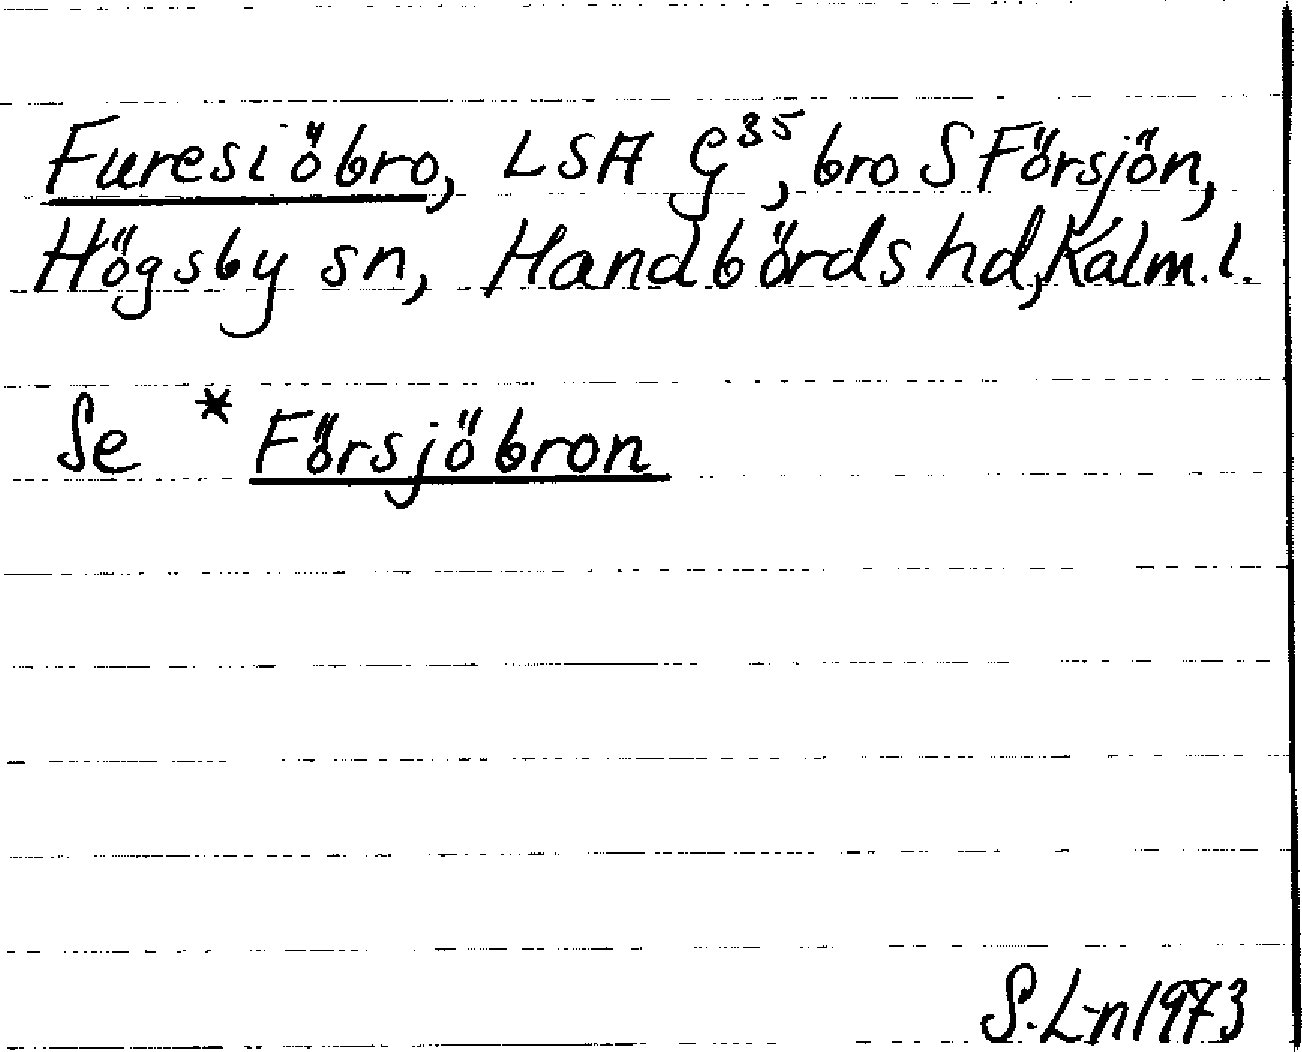 Furesiöbro, LSA G³⁵, bro S Försjön,
Högsby sn, Handbörds hd, Kalm. l.
Se * Försjöbron
S. L-n 1973